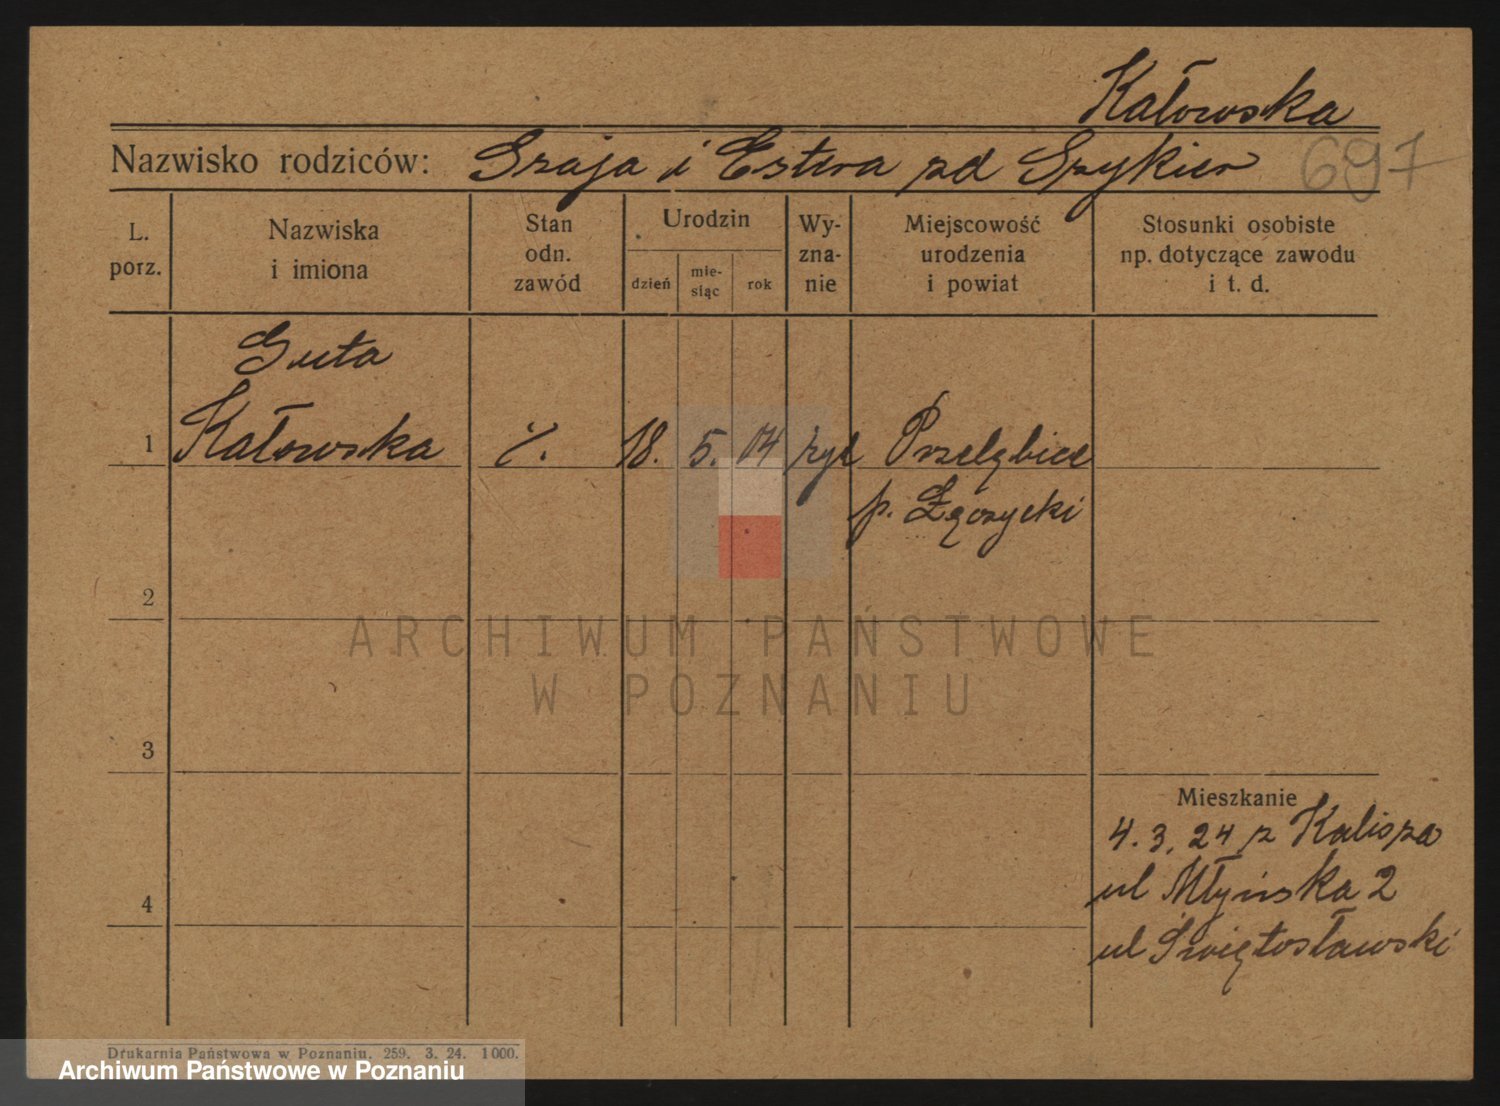 Kałowska
Nazwisko rodziców: Szaja i Estera zd Szykier 697
L. porz. Nazwiska i imiona Stan odn. zawód Urodzin dzień mie-siąc rok Wy-zna-nie Miejscowość urodzenia i powiat Stosunki osobiste np. dotyczące zawodu i t. d.
Guta
1 Kałowska ٪. 18. 5. 04 żyd
p. Łęczycki
2
ARCHIWUM PAŃSTWOWE
W POZNANIU
3
Mieszkanie
4. 3. 24 z Kalisza
ul Młyńska 2
4
ul Świętosławski
Drukarnia Państwowa w Poznaniu. 259. 3. 24. 1000.
Archiwum Państwowe w Poznaniu